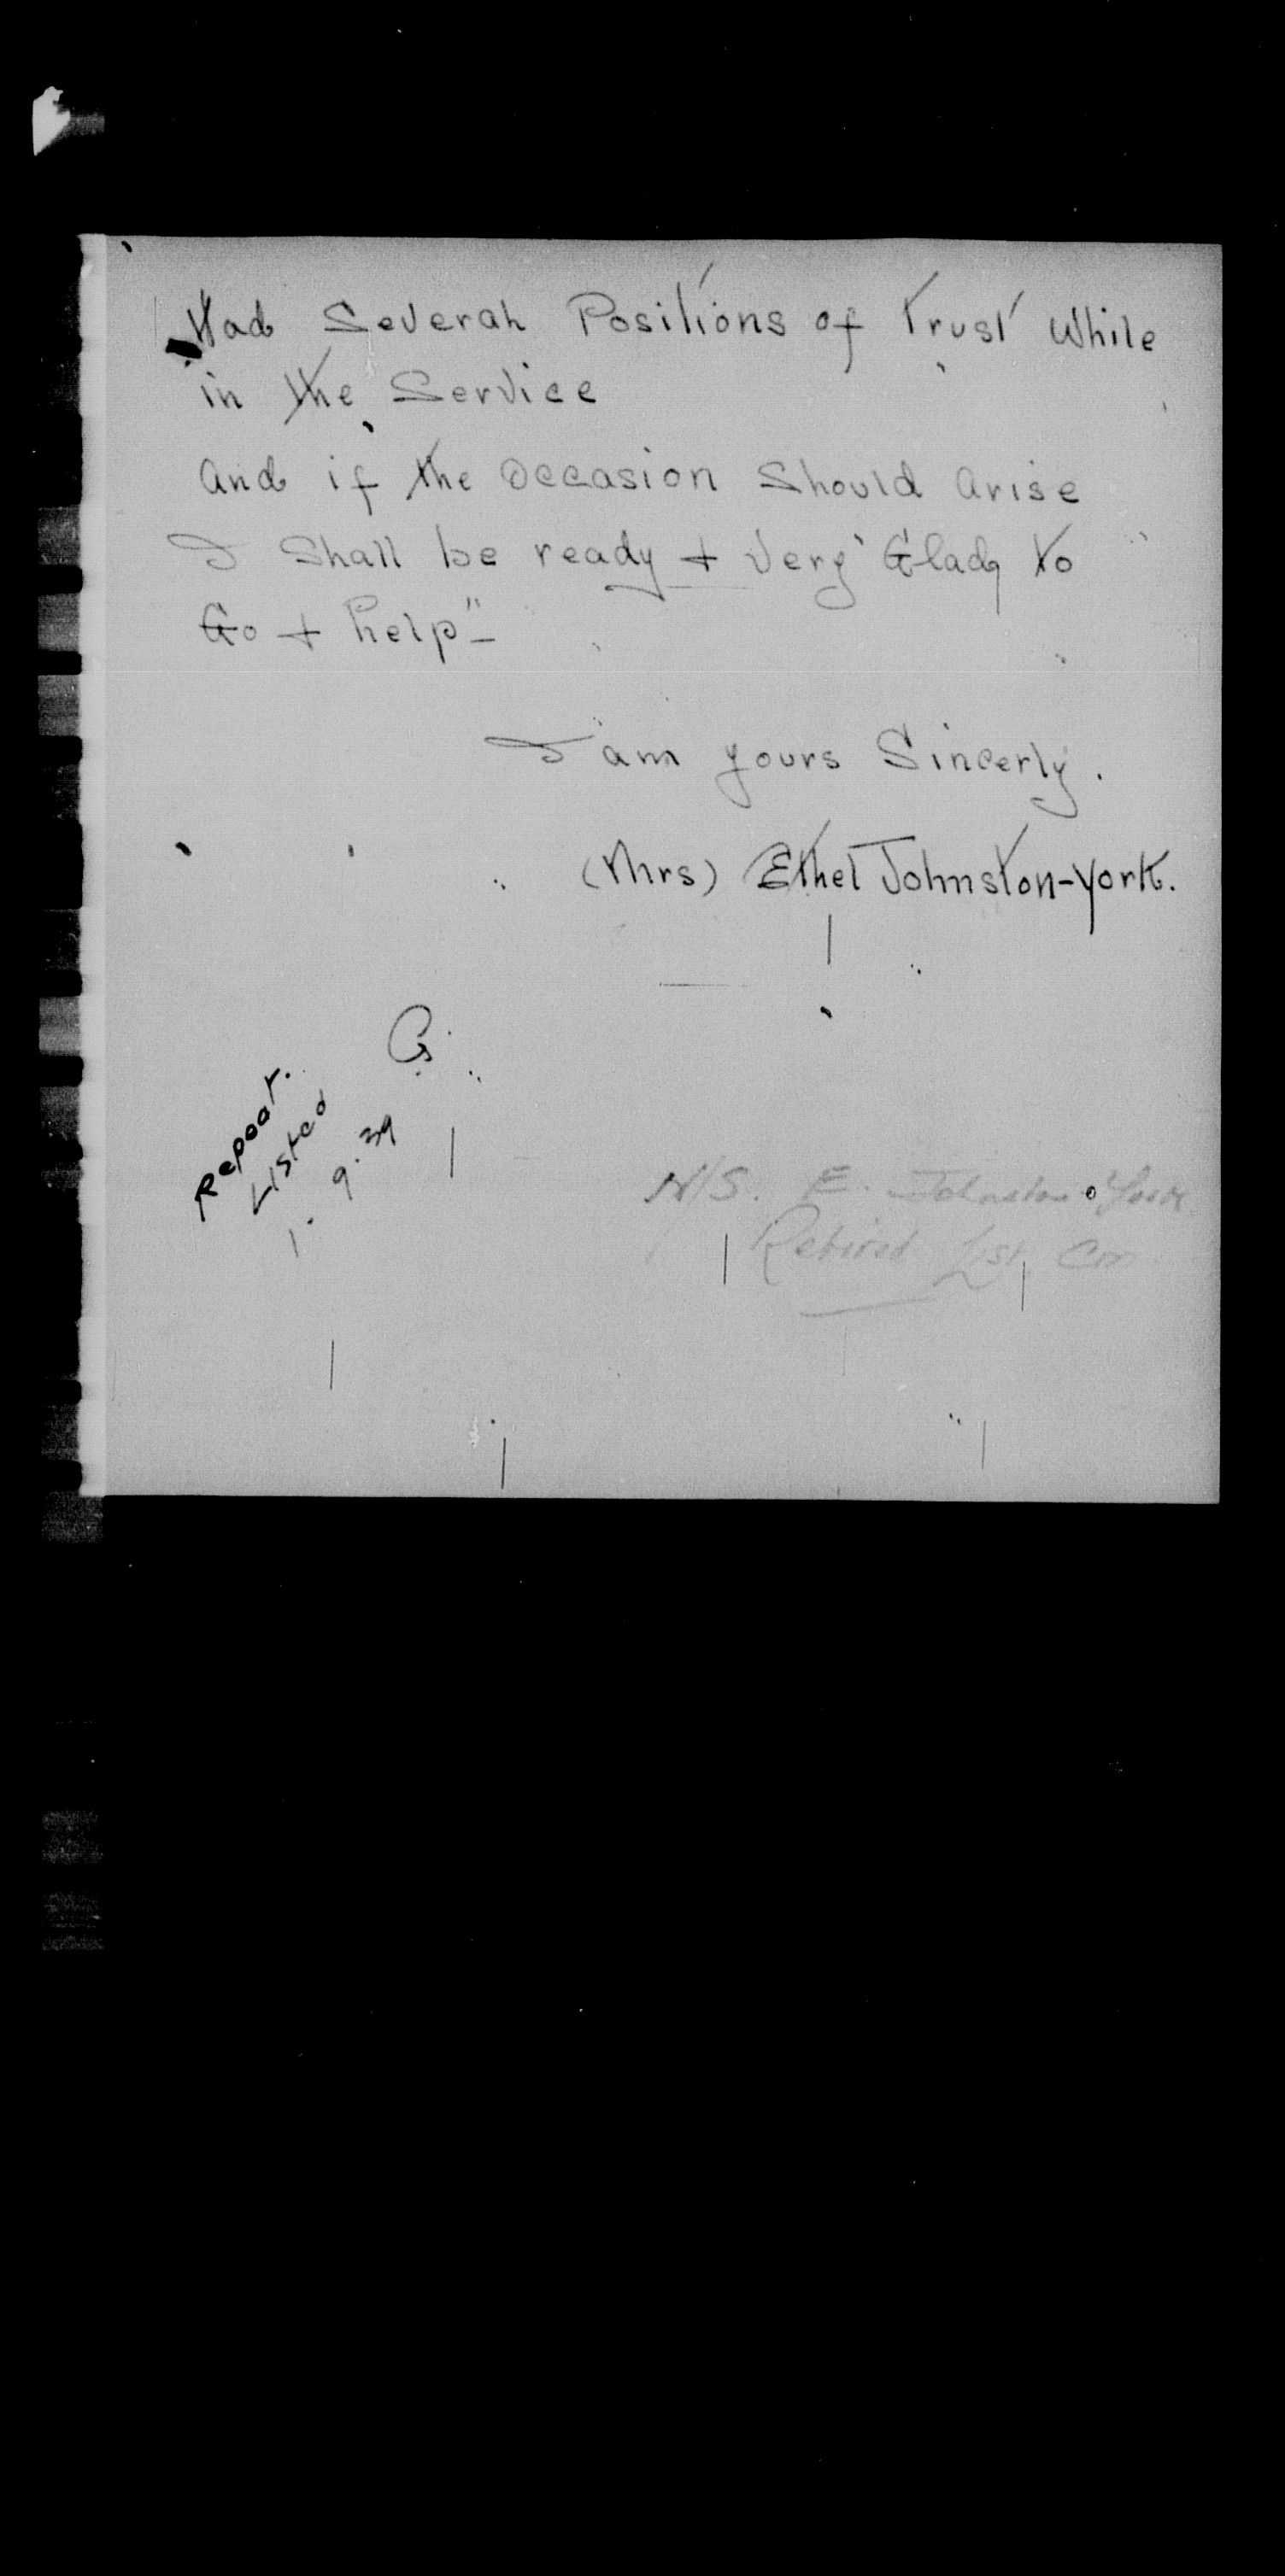 Had Several Positions of Trust While
in the Service
And if the Occasion Should Arise
I Shall be ready + Very Glad to
Go + help"-
I am yours Sincerly.
(Mrs) Ethel Johnston-York.
G.
Repeat.
Listed
1. 9. 39
N/S. E. Johnston York
Retired List